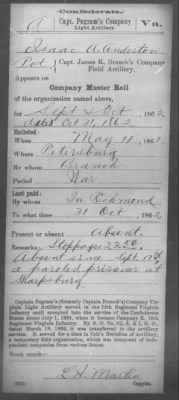 Confederate.
A Capt. Pegram's Company Va.
Light Artillery.
Isaac A. Anderton
Pvt, Capt. James R. Branch's Company
Field Artillery.
Appears on
Company Muster Roll
of the organization named above,
for Sept & Oct, 1862.
dated Oct 31, 1862
Enlisted:
When May 11, 1861
Where Petersburg
By whom Branch
Period War
Last paid:
By whom In Richmond
To what time 31 Oct, 1862
Present or absent Absent.
Remarks: Stoppages 22.50.
Absent since Sept. 17th
a paroled prisoner at
Sharpsburg
Captain Pegram's (formerly Captain Branch's) Company Virginia
Light Artillery served in the 12th Regiment Virginia
Infantry until accepted into the service of the Confederate
States about July 1, 1861, when it became Company K, 16th
Regiment Virginia Infantry. By S. O. No.
dated March 18, 1862, it was transferred to the artillery
service. It served for a time in Coit's Battalion of Artillery,
a temporary field organization, which was composed of independent
companies from various States.
Book mark:
E. H. Martin
Copyist.